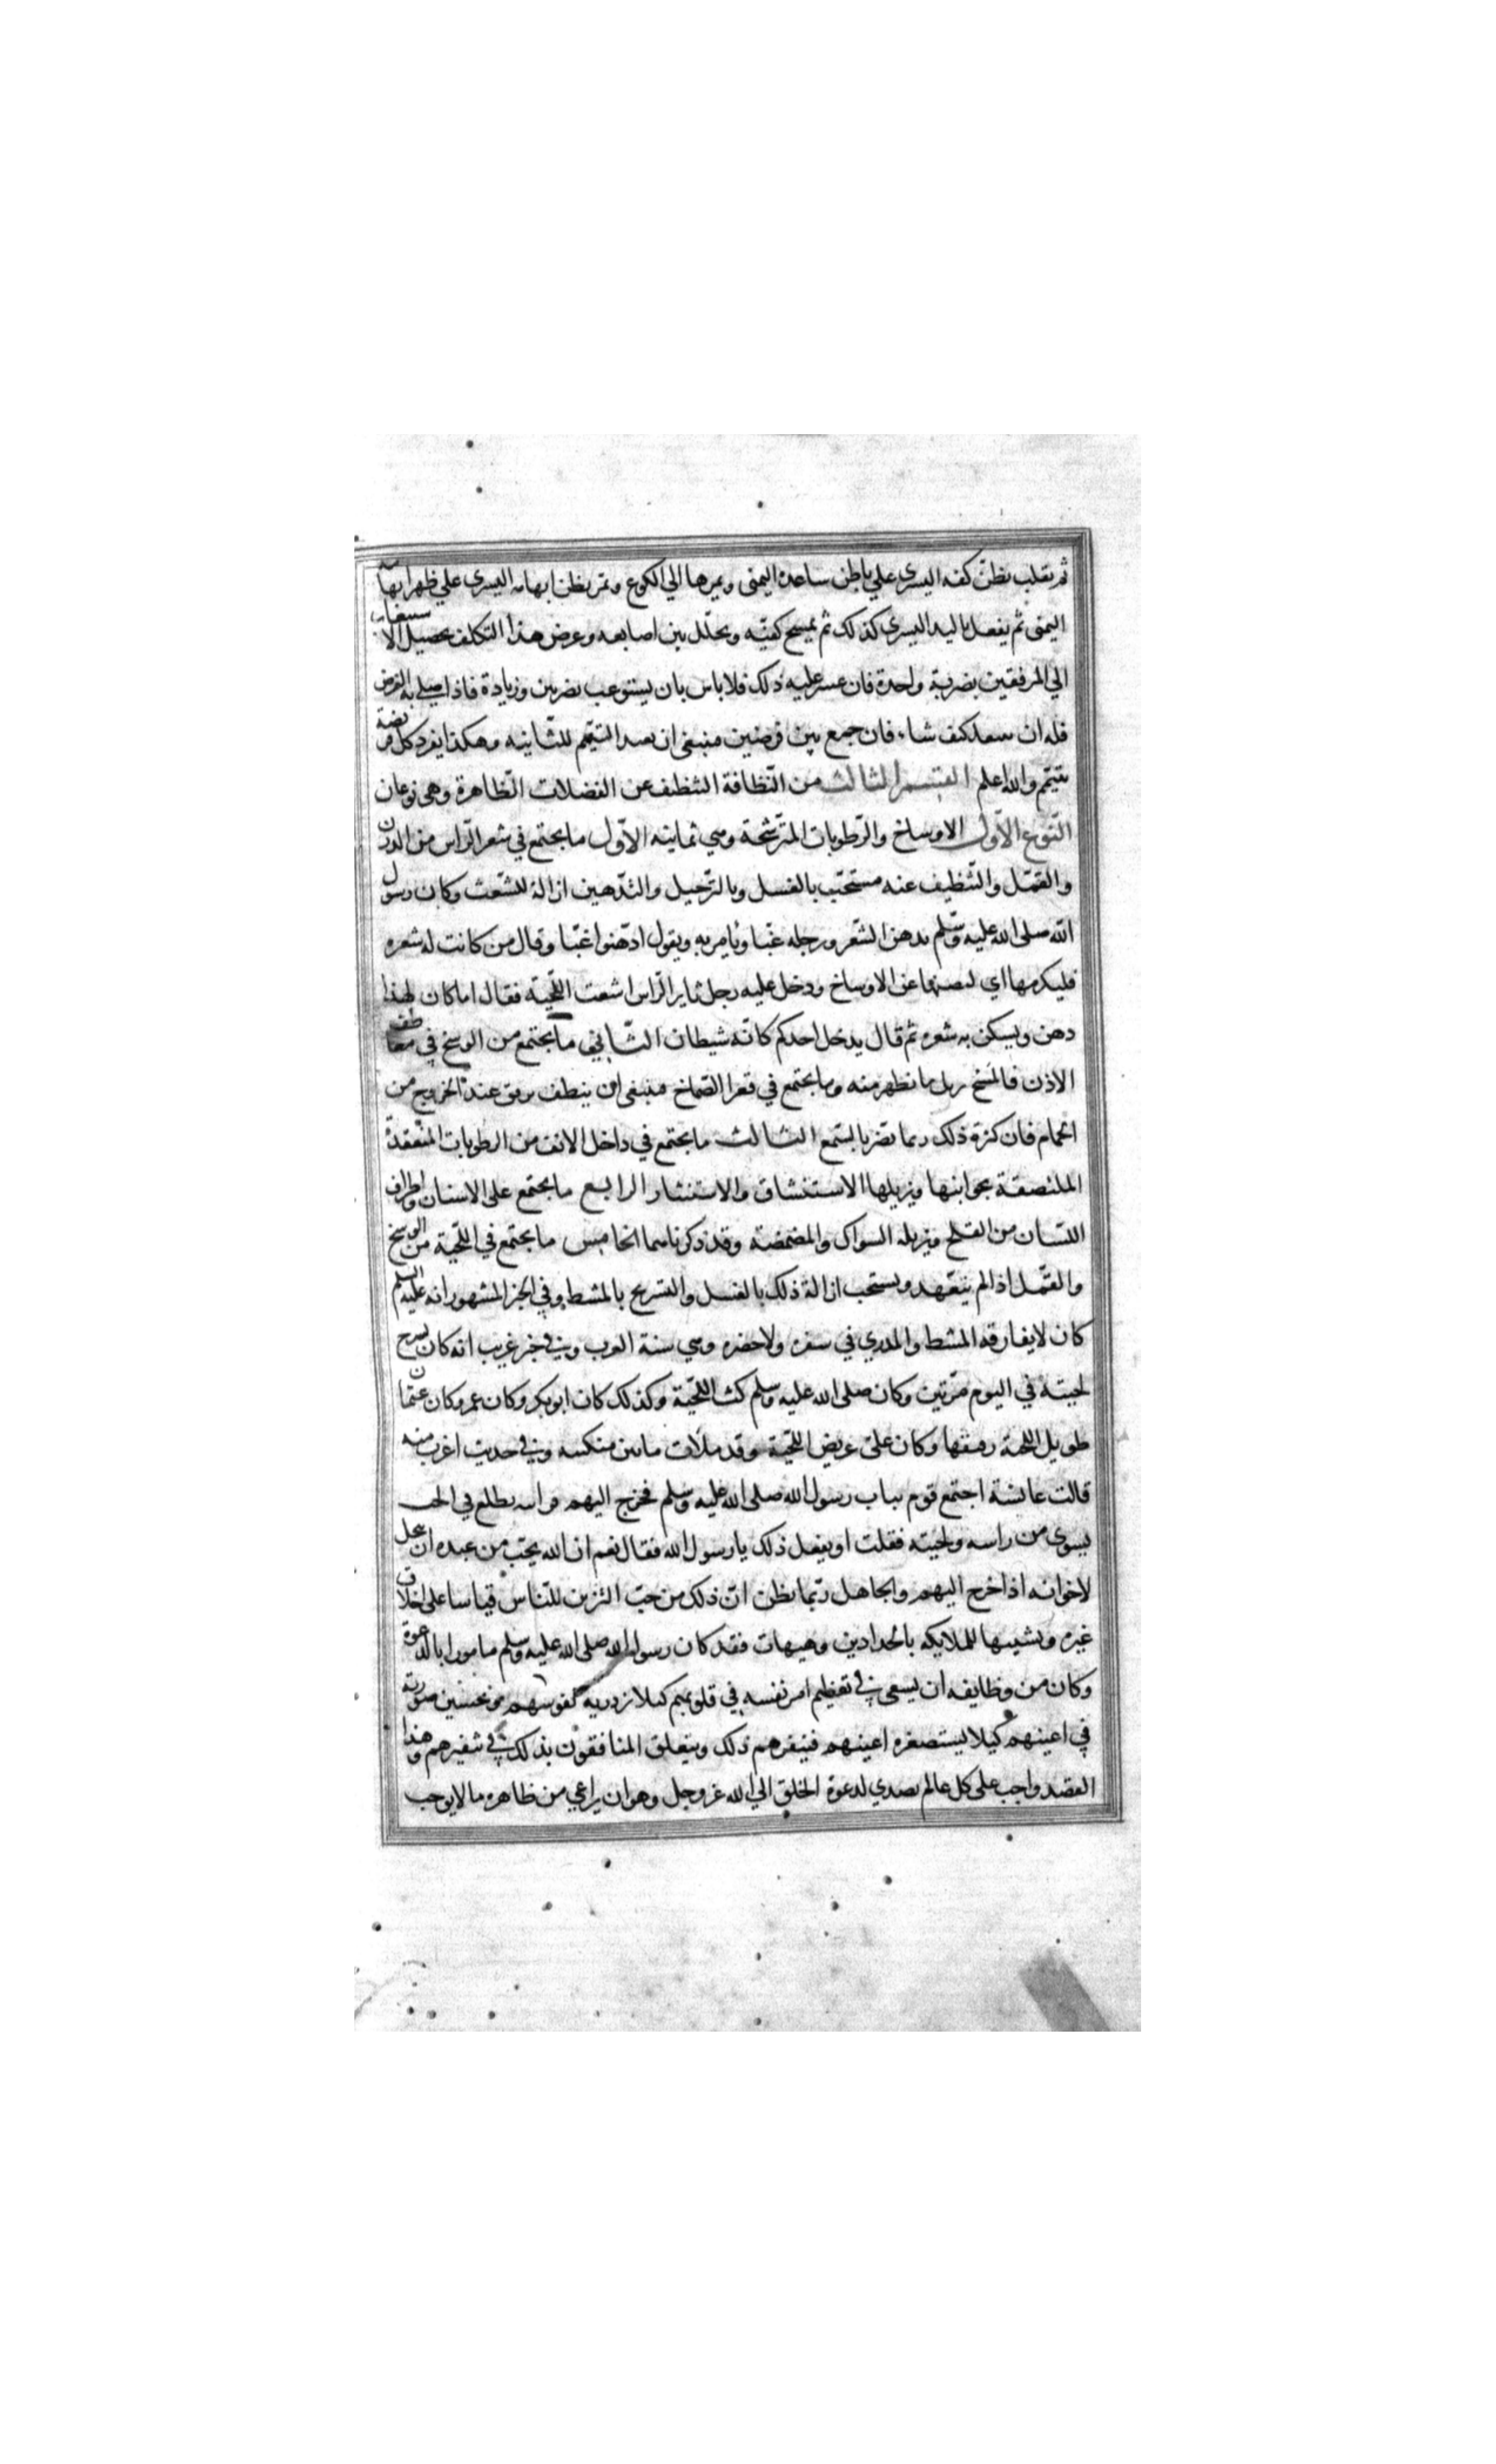 ثم يقلب بطن كفه اليسرى علي باطن ساعده اليمنى ويمرها الي الكوع وتمر بطن ابهامه اليسرى علي ظهر ابهام
اليمنى ثم يفعل باليد اليسرى كذلك ثم يمسح كفيه ويخلل بين اصابعه وعرض هذا التكلف تحصيل الاستيعاب
الي المرفقين بضربة واحدة فان عسر عليه ذلك فلا باس بان يستوعب بضربتين وزيادة فاذا صلي به الفرض
فله ان كيف شاء فان جمع بين فرضين فينبغي ان يعيد التيمم للثانيه وهكذا يفرد كل فريضة
بتيمم والله اعلم القسم الثالث من النظافة التنظف عن الفضلات الظاهرة وهي نوعان
النوع الاول الاوساخ والرطوبات المترشحة وهي ثمانيه الاول ما يجتمع في شعر الراس من الدرن
والقمل والتنظيف عنه مستحب بالغسل وبالترجيل والتدهين ازالة للشعث وكان رسول
الله صلى الله عليه وسلم يدهن الشعر ورجله غبا ويامر به ويقول ادهنوا غبا وقال من كانت له شعره
فليكرمها اي ليصنها عن الاوساخ ودخل عليه رجل ثاير الراس اشعث اللحية فقال اما كان لهذا
دهن ويسكن به شعره ثم قال يدخل احدكم كانه شيطان الثاني ما يجتمع من الوسخ في معاطف
الاذن فالمسح يزيل ما يظهر منه وما يجتمع في قعر الصماخ فينبغي ان ينظف برفق عند الخروج من
الحمام فان كثرة ذلك ربما تضر بالسمع الثالث ما يجتمع في داخل الانف من الرطوبات المنعقدة
الملتصقة بجوانبها ويزيلها الاستنشاق والاستنثار الرابع ما يجتمع على الاسنان واطراف
اللسان من القلح ويزيله السواك والمضمضة وقد ذكرناهما الخامس ما يجتمع في اللحية من الوسخ
والقمل اذا لم يتعهد ويستحب ازالة ذلك بالغسل والتسريح بالمشط وفي الخبر المشهور انه عليه السلم
كان لا يفارقه المشط والمدري في سفره ولا حضره وهي سنة العرب وفي خبر غريب انه كان يسرح
لحيته في اليوم مرتين وكان صلى الله عليه وسلم كث اللحية وكذلك كان ابو بكر وكان عمر وكان عثمان
طويل اللحية رقيقها وكان على عريض اللحية وقد ملات ما بين منكبيه وفي حديث اغرب منه
قالت عايشة اجتمع قوم بباب رسول الله صلى الله عليه وسلم فخرج اليهم فرايته يطلع في الحب
يسوي من راسه ولحيته فقلت اويفعل ذلك يا رسول الله فقال نعم ان الله يحب من عبده ان يتجمل
لاخوانه اذا خرج اليهم والجاهل ربما يظن ان ذلك من حب التزين للناس قياسا على اخلاق
غيره وتشبيها للملايكه بالحدادين وهيهات فقد كان رسول الله صلى الله عليه وسلم مامورا بالدعوة
وكان من وظايفه ان يسعى في تعظيم امر نفسه في قلوبهم كيلا تزدريه نفوسهم وتحسين صورته
في اعينهم كيلا يستصغره اعينهم فينفرهم ذلك ويتعلق المنافقون بذلك في تنفيرهم وهذا
القصد واجب على كل عالم تصدي لدعوة الخلق الي الله عز وجل وهو ان يراعي من ظاهره ما لا يوجب